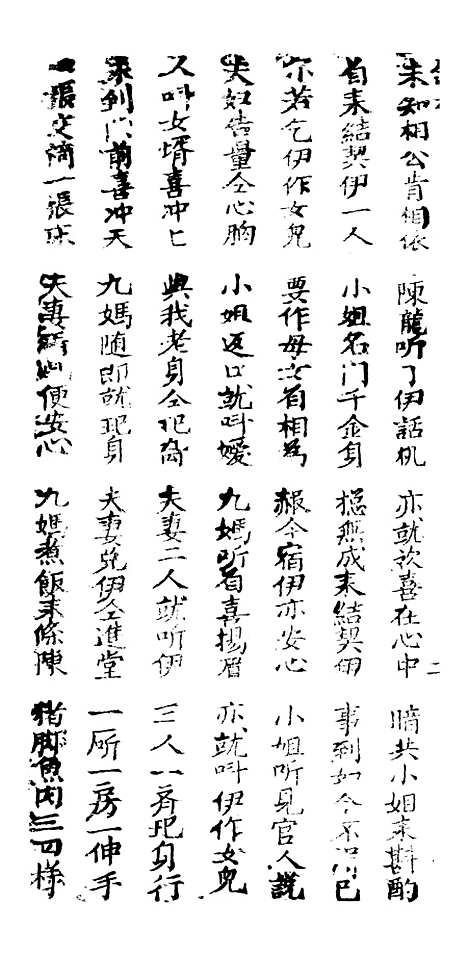 未知相公肯相依
陳龍听了伊話机
亦就欢喜在心中
暗共小姐来斟酌
来結契伊一人
小姐名门千金身
成来結契伊
事到如今不已
不若乞伊作女兒
要作母女有相為
今宿伊亦安心
小姐听見官人說
夫妇告量仝心胸
小姐返口就叫嬡
九媽听着喜揚眉
亦就叫伊作女兒
又叫女壻喜冲匕
與我老身仝起
夫妻二人就听伊
三人一齐起身行
来到门前喜冲天
九媽随即就起身
夫妻兑伊仝進堂
一所一房一伸手
一張交一張床
夫妻此便安心
九媽煮飯来條陳
猪脚魚肉三四様
二